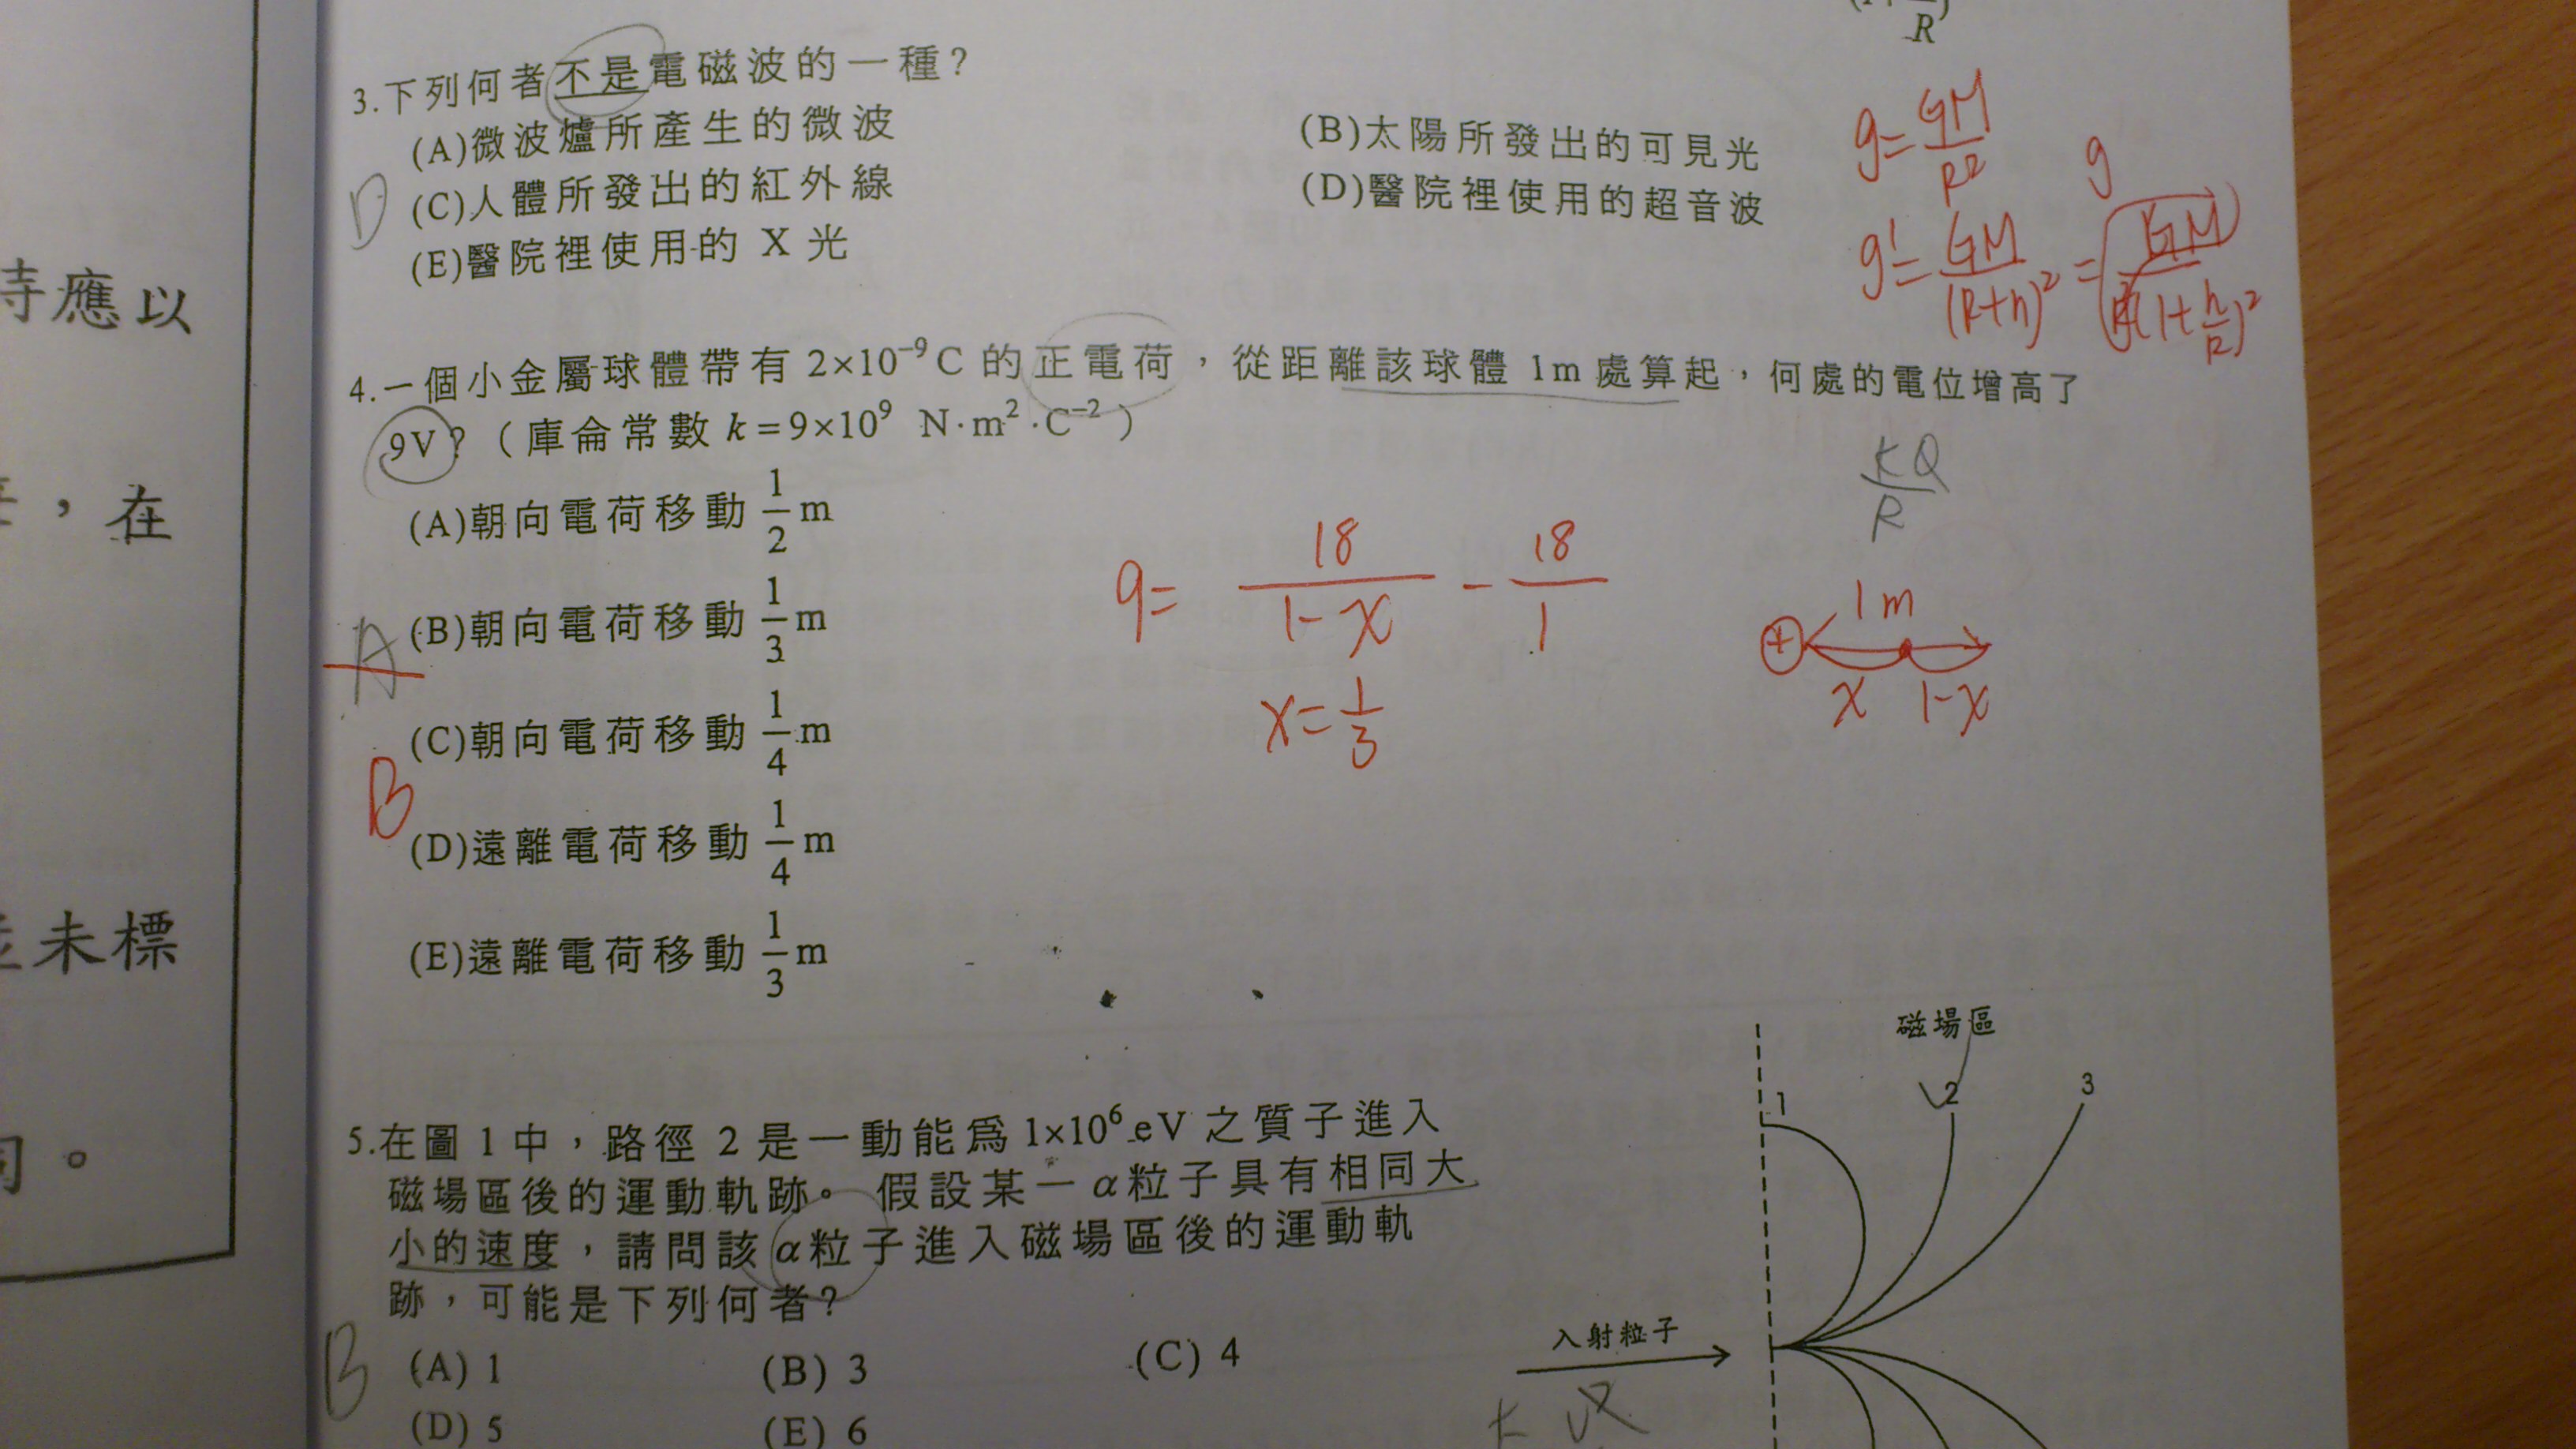 R
3.下列何者不是電磁波的一種?
(A)微波爐所產生的微波
(B)太陽所發出的可見光
(C)人體所發出的紅外線
(D)醫院裡使用的超音波
(E)醫院裡使用的 X 光
D
g=GM/R²
g
g'=GM/(R+h)²=GM/R²(1+h/R)²
4.一個小金屬球體帶有 2×10⁻⁹C 的正電荷，從距離該球體 1m 處算起，何處的電位增高了
9V?（庫侖常數 k=9×10⁹ N·m²·C⁻²）
KQ/R
(A)朝向電荷移動 1/2 m
(B)朝向電荷移動 1/3 m
(C)朝向電荷移動 1/4 m
(D)遠離電荷移動 1/4 m
(E)遠離電荷移動 1/3 m
A
B
9= 18/1-x - 18/1
x=1/3
1m
+
x 1-x
5.在圖 1 中，路徑 2 是一動能爲 1×10⁶ eV 之質子進入
磁場區後的運動軌跡。假設某一 α粒子具有相同大
小的速度，請問該 α粒子進入磁場區後的運動軌
跡，可能是下列何者?
B
(A) 1 (B) 3 (C) 4
(D) 5 (E) 6
磁場區
1 2 3
入射粒子
時應以
，在
未標
。